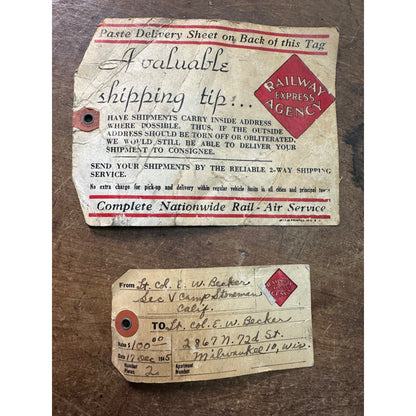 Paste Delivery Sheet on Back of this Tag
A valuable
shipping tip:..
RAILWAY
EXPRESS
AGENCY
HAVE SHIPMENTS CARRY INSIDE ADDRESS
WHERE POSSIBLE. THUS, IF THE OUTSIDE
ADDRESS SHOULD BE TORN OFF OR OBLITERATED,
WE WOULD STILL BE ABLE TO DELIVER YOUR
SHIPMENT TO CONSIGNEE.
SEND YOUR SHIPMENTS BY THE RELIABLE 2-WAY SHIPPING
SERVICE.
No extra charge for pick-up and delivery within regular vehicle limits in all cities and principal towns
Complete Nationwide Rail-Air Service
From Lt. Col. E. W. Becker
Sec V Camp Stoneman
Calif.
TO Lt. Col. E. W. Becker
Value $ 100.00
2867 N. 72d St.
Date 17 Dec 1945
Milwaukee 10, Wis.
Number Pieces 2
Apartment Number